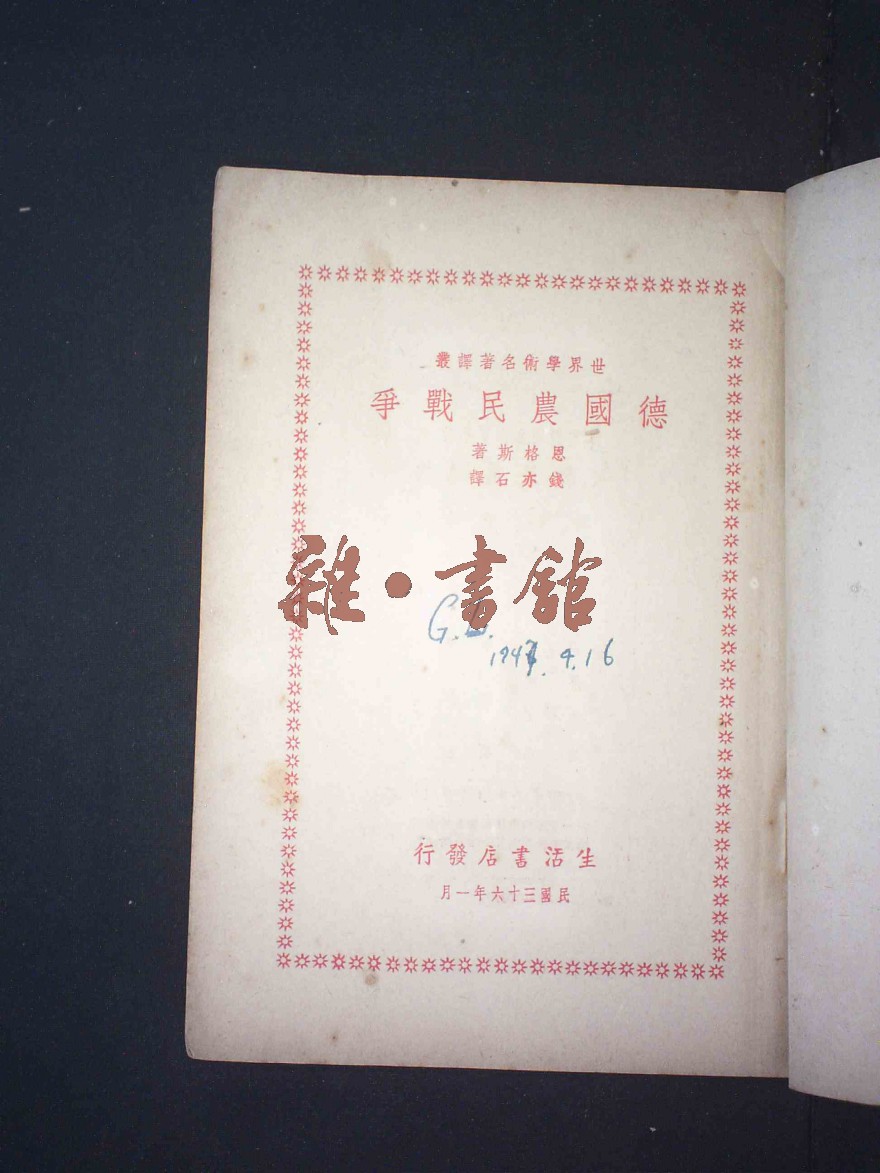 世界學術名著譯叢
德國農民戰爭
恩格斯著
錢亦石譯
雜·書館
1947. 4.16
生活書店發行
民國三十六年一月